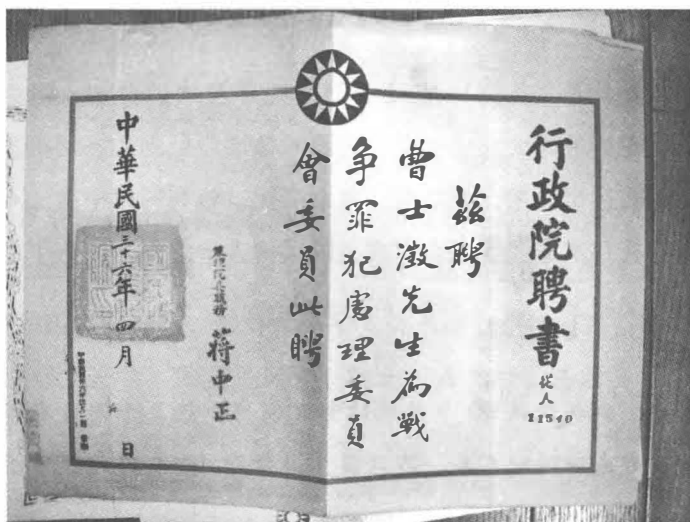 行政院聘書
從人
11540
茲聘
曹士澂先生為戰
爭罪犯處理委員
會委員此聘
兼行院長職務 蔣中正
中華民國三十六年四月 日